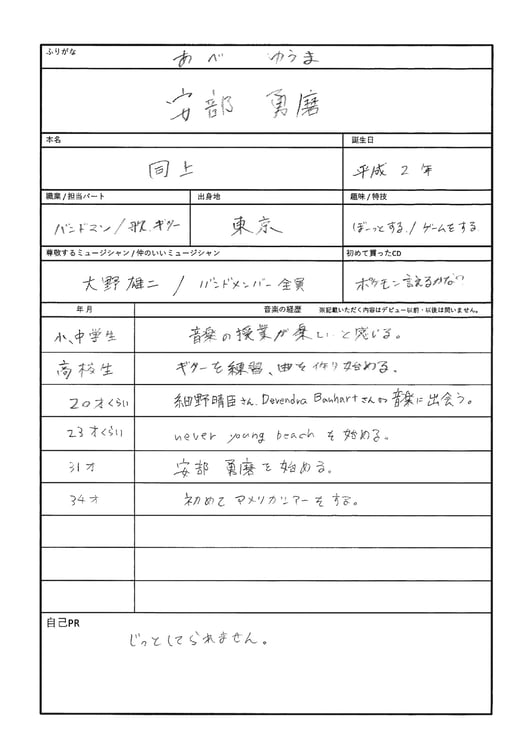 ふりがな
あべ ゆうま
安部 勇磨
本名
誕生日
同上
平成2年
職業/担当パート
出身地
趣味/特技
バンドマン/歌、ギター
東京
ぼーっとする。/ゲームをする
尊敬するミュージシャン/仲のいいミュージシャン
初めて買ったCD
大野雄二/バンドメンバー全員
ポケモン言えるかな?
年月
音楽の経歴 ※記載いただく内容はデビュー以前・以後は問いません。
小、中学生 音楽の授業が楽しいと感じる。
高校生 ギターを練習、曲を作り始める。
20才くらい 細野晴臣さん、Devendra Banhartさんの音楽に出会う。
23才くらい never young beachを始める。
31才 安部勇磨を始める。
34才 初めてアメリカツアーをする。
自己PR
じっとしてられません。